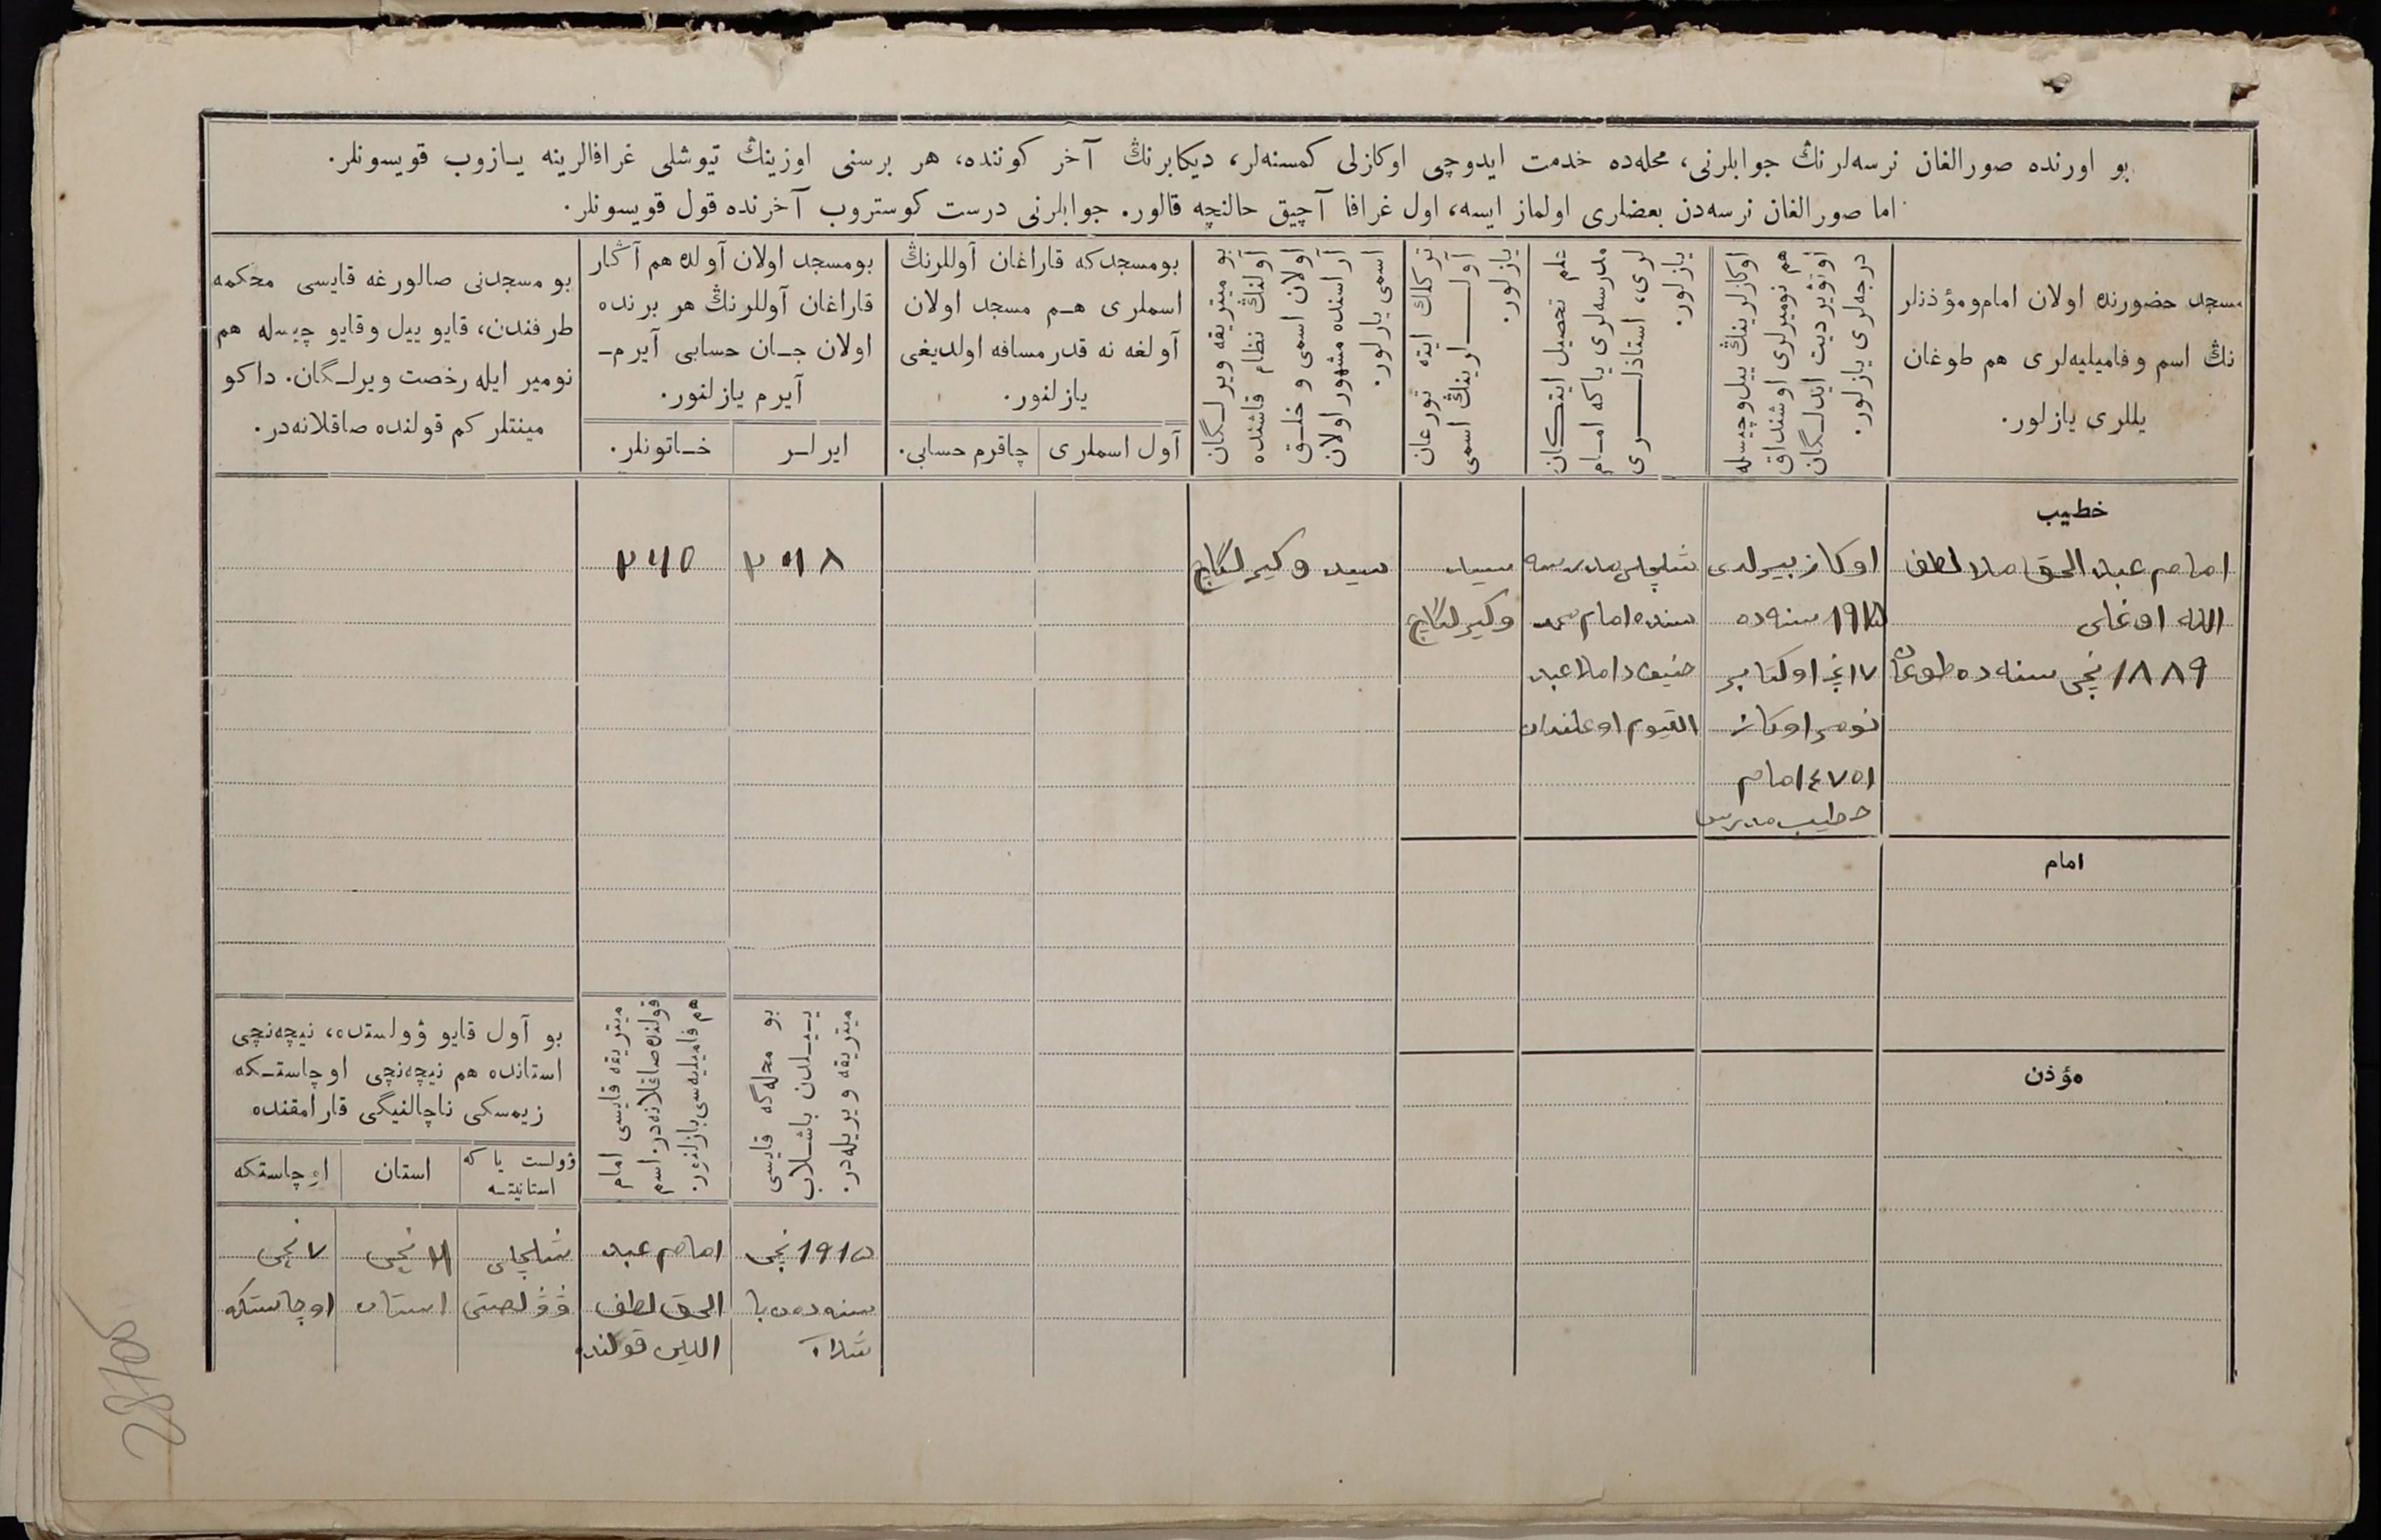 بو اورنده صورالغان نرسه‌لرنڭ جوابلرنی، محله‌ده خدمت ایدوچی اوکازلی کمسنه‌لر، دیکابرنڭ آخر کوننده، هر برسنی اوزینڭ تیوشلی غرافالرینه یازوب قویسونلر.
اما صورالغان نرسه‌دن بعضلری اولماز ایسه، اول غرافا آچیق حالنچه قالور. جوابلرنی درست کوستروب آخرنده قول قویسونلر.
مسجد حضورنده اولان امام و مؤذنلر
نڭ اسم و فامیلیه‌لری هم طوغان
یللری یازلور.
اوکازلرینڭ ییل و چیسله
هم نومیرلری اوشنداق
اوتوێردیت ایدلگان
درجه‌لری یازلور.
علم تحصیل ایتکان
مدرسه‌لری یا که امام
لری، استاذلری
یازلور.
ترکلك ایته تورغان
آوللرینڭ اسمی
یازلور.
بو میتریقه ویرلگان
آولنڭ نظام قاشنده
اولان اسمی و خلق
آراسنده مشهور اولان
اسمی یازلور.
بو مسجدکه قاراغان آوللرنڭ
اسملری هم مسجد اولان
آولغه نه قدر مسافه اولدیغی
یازلنور.
آول اسملری
چاقرم حسابی.
بو مسجد اولان آولده هم آڭار
قاراغان آوللرنڭ هر برنده
اولان جان حسابی آیرم-
آیرم یازلنور.
ایرلر
خاتونلر.
بو مسجدنی صالورغه قایسی محکمه
طرفندن، قایو ییل و قایو چیسله هم
نومیر ایله رخصت ویرلگان. داکو
مینتلر کم قولنده صاقلانه‌در.
خطیب
امام عبد الحق ملا لطف
الله اوغلی
1889 نچی سنه ده طوغان
اوکاز بیرلدی
1915 سنه ده
17 نچی اوکتابر
نومر اوکاز
4751 امام
خطیب مدرس
شلچلی مدرسه
سنده امام محمد
حنیف داملا عبد
القیوم اوغلندان
سید
وکیرلگاچ
سید وکیرلگاچ
358
365
امام
مؤذن
بو محله‌گه قایسی
ییلدن باشلاب
میتریقه ویریله‌در.
میتریقه قایسی امام
قولنده صاقلانه‌در، اسم
هم فامیلیه‌سی یازلنور.
بو آول قایو ۋولستده، نیچه‌نچی
استانده هم نیچه‌نچی اوچاستکه
زیمسکی ناچالنیگی قارامقنده
ۋولست یا که
استانیتسه
استان
اوچاستکه
1915 نچی
سنه ده ن با
شلاب
امام عبد
الحق لطف
اللین قولنده
شلچلی
ۋولصتی
4 نچی
استان
7 نچی
اوچاستکه